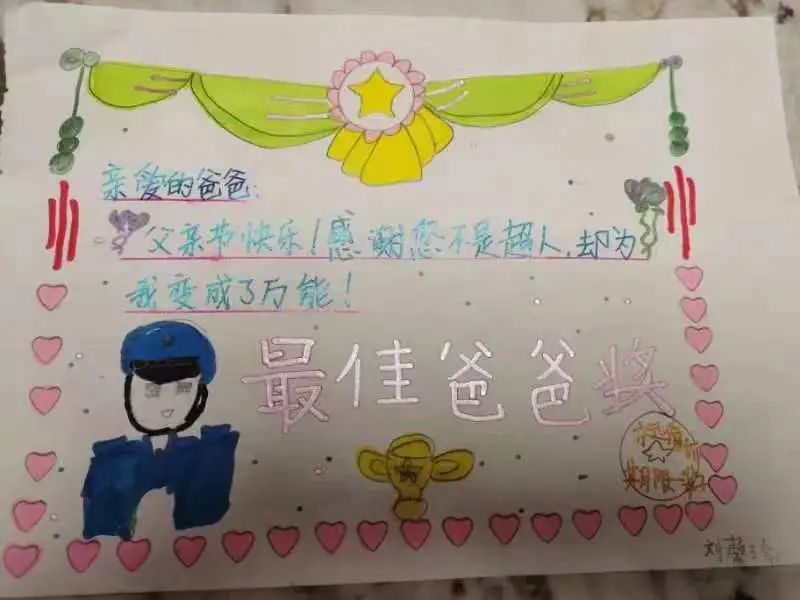 亲爱的爸爸:
父亲节快乐!感谢您不是超人,却为
我变成了万能!
最佳爸爸奖